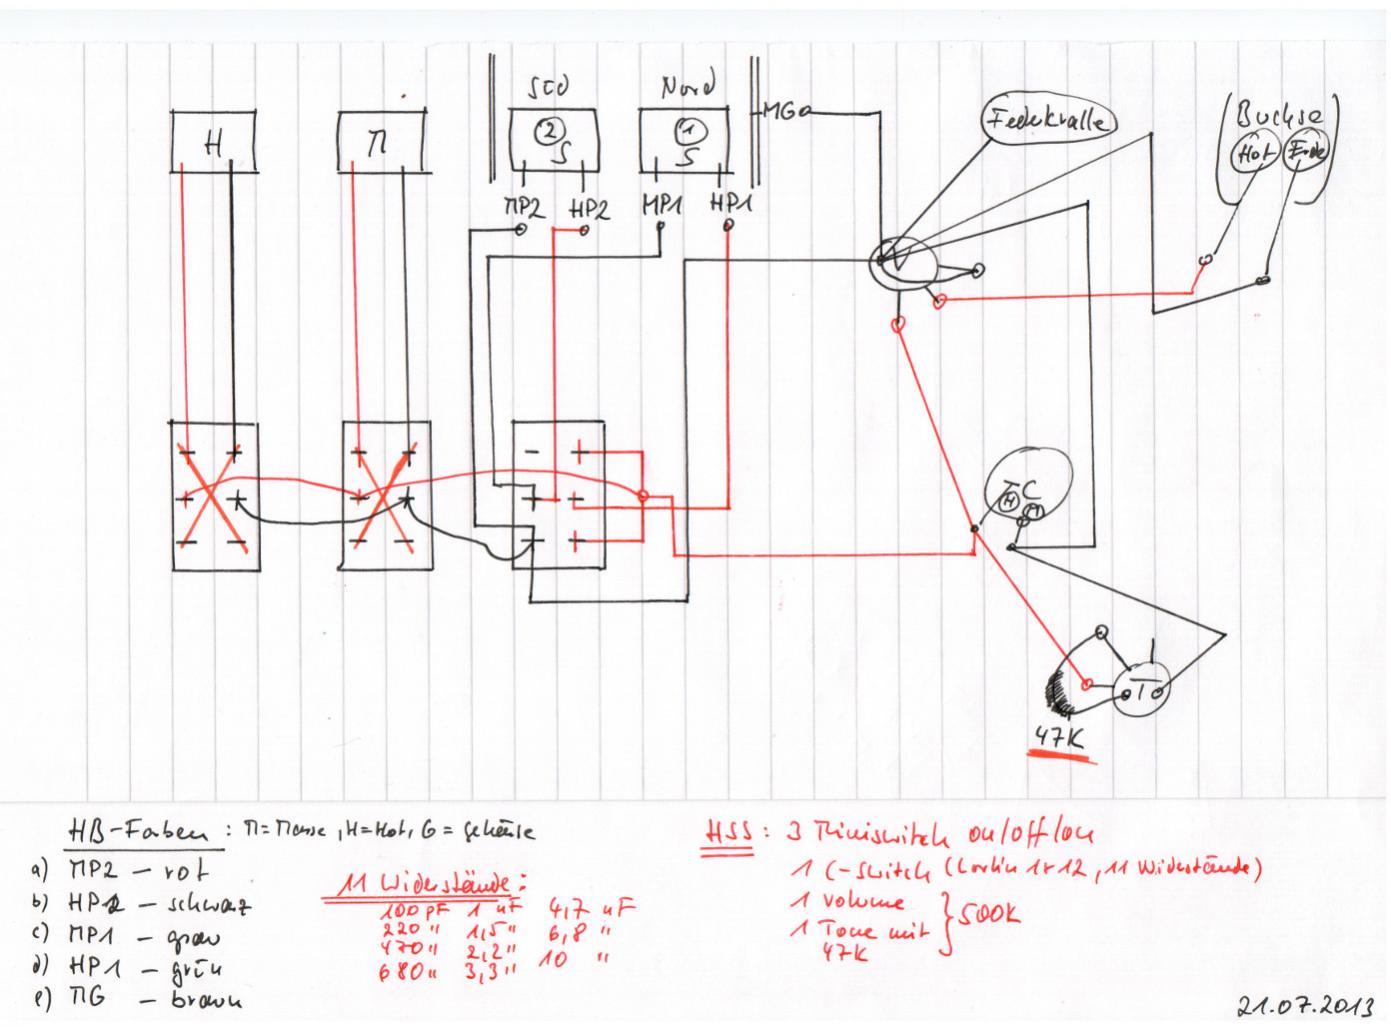 Süd
Nord
MG
Federkralle
Buchse
Hot
Erde
H
M
2
S
1
S
MP2
HP2
MP1
HP1
V
C
H
M
T
47K
HB-Farben : M=Masse, H=Hot, G=gehäuse
a) MP2 – rot
b) HP2 – schwarz
c) MP1 – grau
d) HP1 – grün
e) MG – braun
11 Widerstände:
100 pF 1 nF 4,7 nF
220 " 1,5 " 6,8 "
470 " 2,2 " 10 "
680 " 3,3 "
HSS: 3 Miniswitch on/off/on
1 C-Switch (Lorlin 1x12, 11 Widerstände)
1 volume
1 Tone mit
47K
500K
21.07.2013